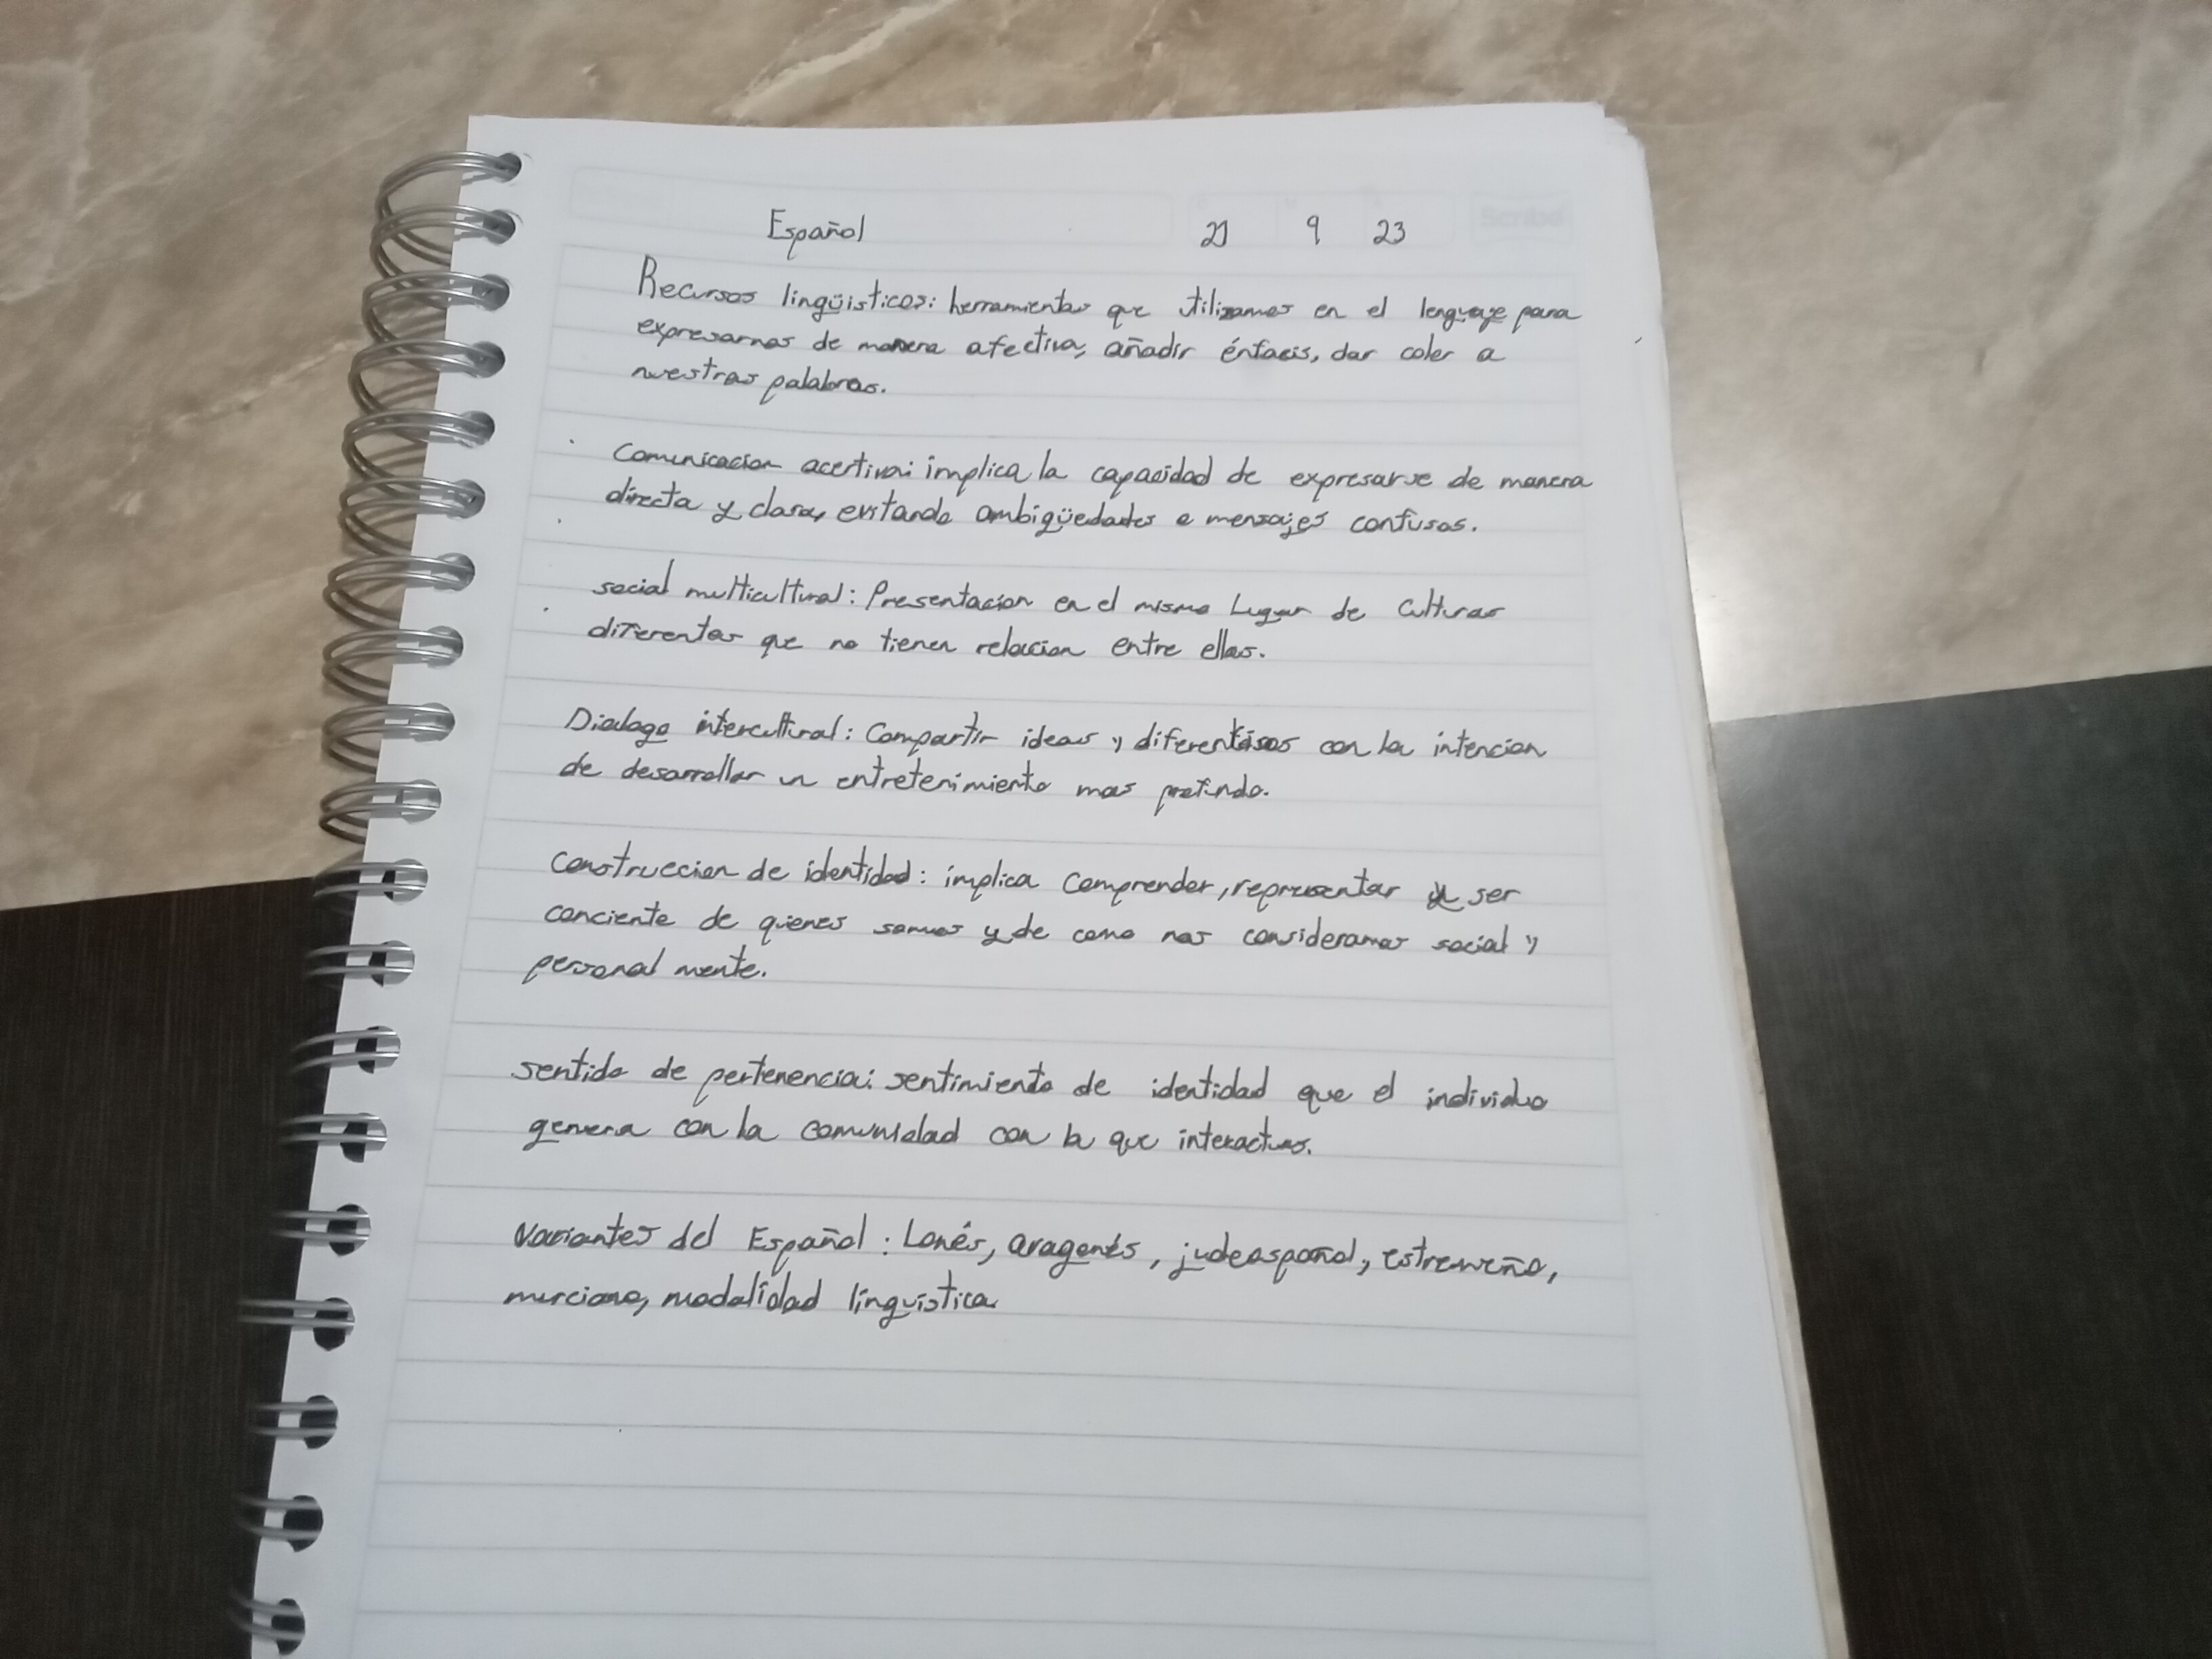 Español 21 9 23
Recursos lingüisticos: herramientas que utilizamos en el lenguaje para
expresarnos de manera afectiva, añadir énfasis, dar color a
nuestras palabras.
Comunicacion acertiva: implica la capacidad de expresarse de manera
directa y clara, evitando ambigüedades o mensajes confusos.
social multicultural: Presentacion en el mismo Lugar de Culturas
diferentes que no tienen relacion entre ellas.
Dialogo intercultural: Compartir ideas y con la intencion
de desarrollar un entretenimiento mas profundo.
Construccion de identidad: implica Comprender, representar y ser
conciente de quienes somos y de como nos consideramos social y
personal mente.
sentido de pertenencia: sentimiento de identidad que el individuo
genera con la comunidad con la que interactua.
Variantes del Español: Lonés, aragonés, judeaspañol, estremeño,
murciano, modalidad lingüistica